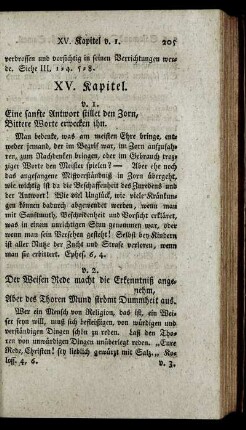 XV. Kapitel v. 1. 205
verdrossen und vorsichtig in seinen Verrichtungen wer-
de. Siehe III, 1=4. 5=8.
XV. Kapitel.
v. 1.
Eine sanfte Antwort stillet den Zorn,
Bittere Worte erwecken ihn.
Man bedenke, was am meisten Ehre bringe, ent-
weder jemand, der im Begrif war, im Zorn aufzufah-
ren, zum Nachdenken bringen, oder im Gebrauch trozi-
ger Worte den Meister spielen? — Aber ehe noch
das angefangene Mißverständniß in Zorn übergeht,
wie wichtig ist da die Beschaffenheit des Zuredens und
der Antwort! Wie viel Unglück, wie viele Kränkun-
gen können dadurch abgewendet werden, wenn man
mit Sanftmuth, Bescheidenheit und Vorsicht erkläret,
was in einem unrichtigen Sinn genommen war, oder
wenn man sein Versehen gesteht! Selbst bey Kindern
ist aller Nutze der Zucht und Strafe verloren, wenn
man sie erbittert. Ephes. 6, 4.
v. 2.
Der Weisen Rede macht die Erkenntniß ange-
nehm,
Aber des Thoren Mund strömt Dummheit aus.
Wer ein Mensch von Religion, das ist, ein Wei-
ser seyn will, muß sich befleißigen, von würdigen und
verständigen Dingen schön zu reden. Laß den Tho-
ren von unwürdigen Dingen unüberlegt reden. „Eure
Rede, Christen! sey lieblich gewürzt mit Salz.„ Ko-
loss. 4, 6.
v. 3.